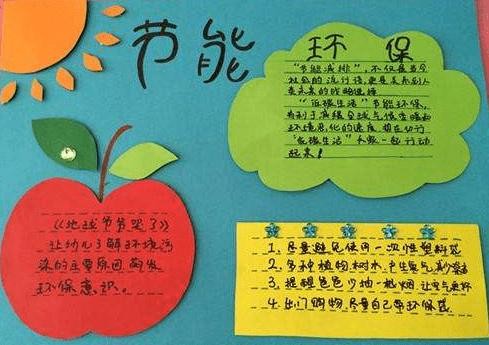 节能
环保
“节能减排”,不仅是当今
社会的流行语,更是关系到人
类未来的战略选择
“低碳生活”节能环保,
有利于减缓全球气候变暖和
环境恶化的速度
“低碳生活” 一起行动
起来!
《地球爷爷哭了》
让幼儿了解环境污
染的主要原因,萌发
环保意识。
1、尽量避免使用一次性塑料袋
2、多种植物、树木,产生氧气,
3、提醒爸爸少抽一根烟,让空气更好
4、出门购物,尽量自己带环保袋